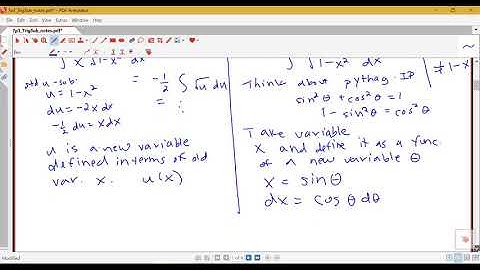 7p3_TrigSub_notes.pdf* - PDF Annotator
7p3_TrigSub_notes.pdf*
∫ x √1-x² dx
std u-sub:
u = 1-x²
du = -2xdx
-½ du = xdx
= -½ ∫ √u du
= :
u is a new variable
defined in terms of old
var. x. u(x)
∫ √1-x² dx
≠ 1-x
Think about pythag. ID
sin²θ + cos²θ = 1
1 - sin²θ = cos²θ
Take variable
x and define it as a func.
of a new variable θ
x = sinθ
dx = cosθ dθ
Modified